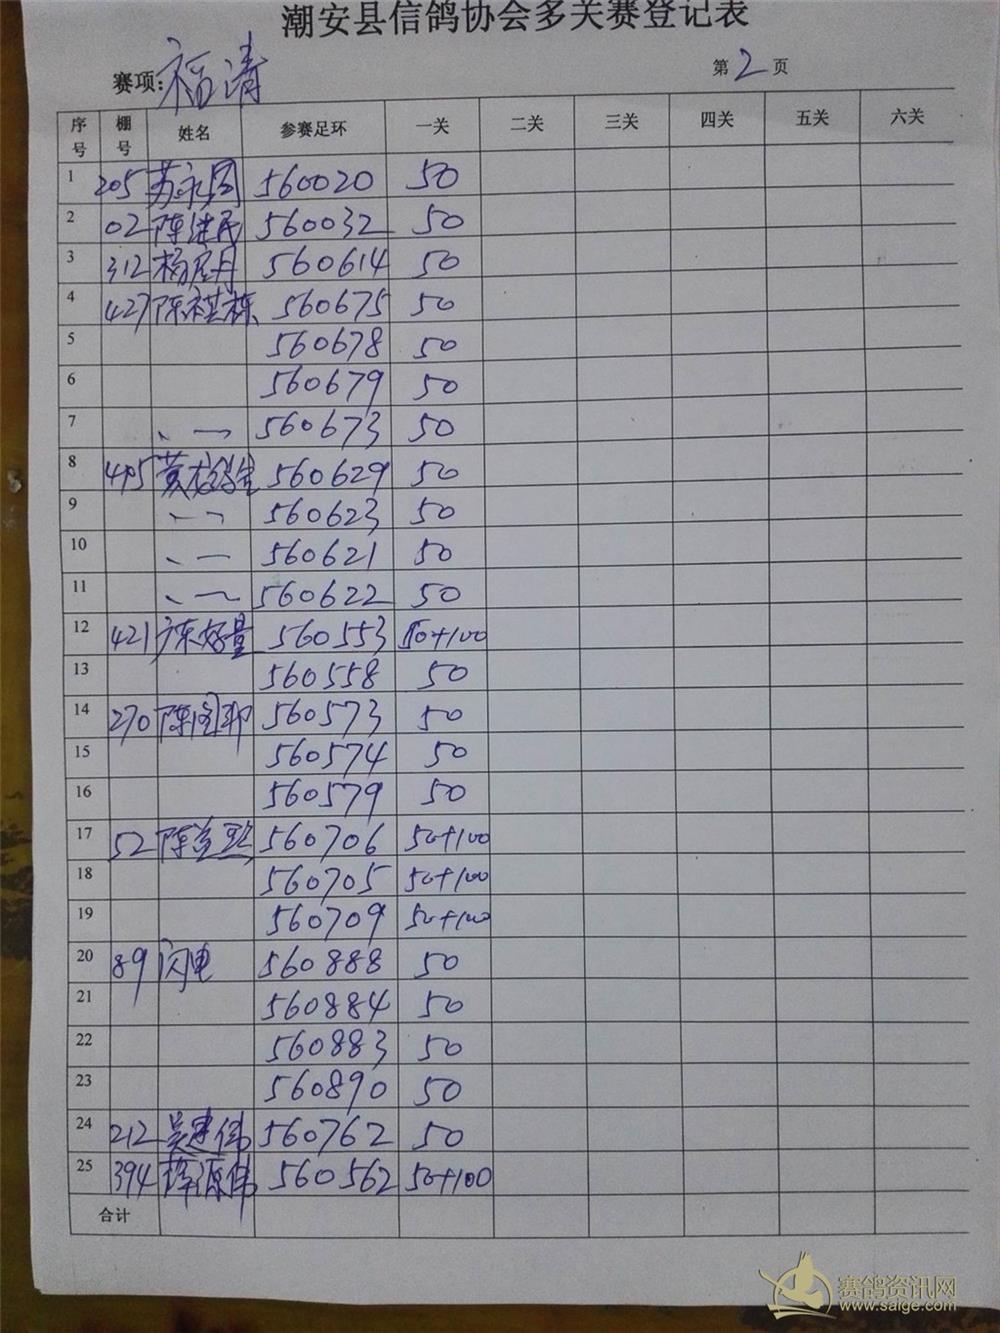 潮安县信鸽协会多关赛登记表
赛项:福清 第2页
序号 棚号 姓名 参赛足环 一关 二关 三关 四关 五关 六关
1 205 苏永周 560020 50
2 02 陈建民 560032 50
3 312 杨 560614 50
4 427 陈祺栋 560675 50
5 560678 50
6 560679 50
7 560673 50
8 495 黄 560629 50
9 560623 50
10 560621 50
11 560622 50
12 421 560553 50+100
13 560558 50
14 270 陈 560573 50
15 560574 50
16 560579 50
17 52 陈 560706 50+100
18 560705 50+100
19 560709 50+100
20 89 闪电 560888 50
21 560884 50
22 560883 50
23 560890 50
24 212 吴建伟 560762 50
25 394 源伟 560562 50+100
合计
赛鸽资讯网
www.saige.com